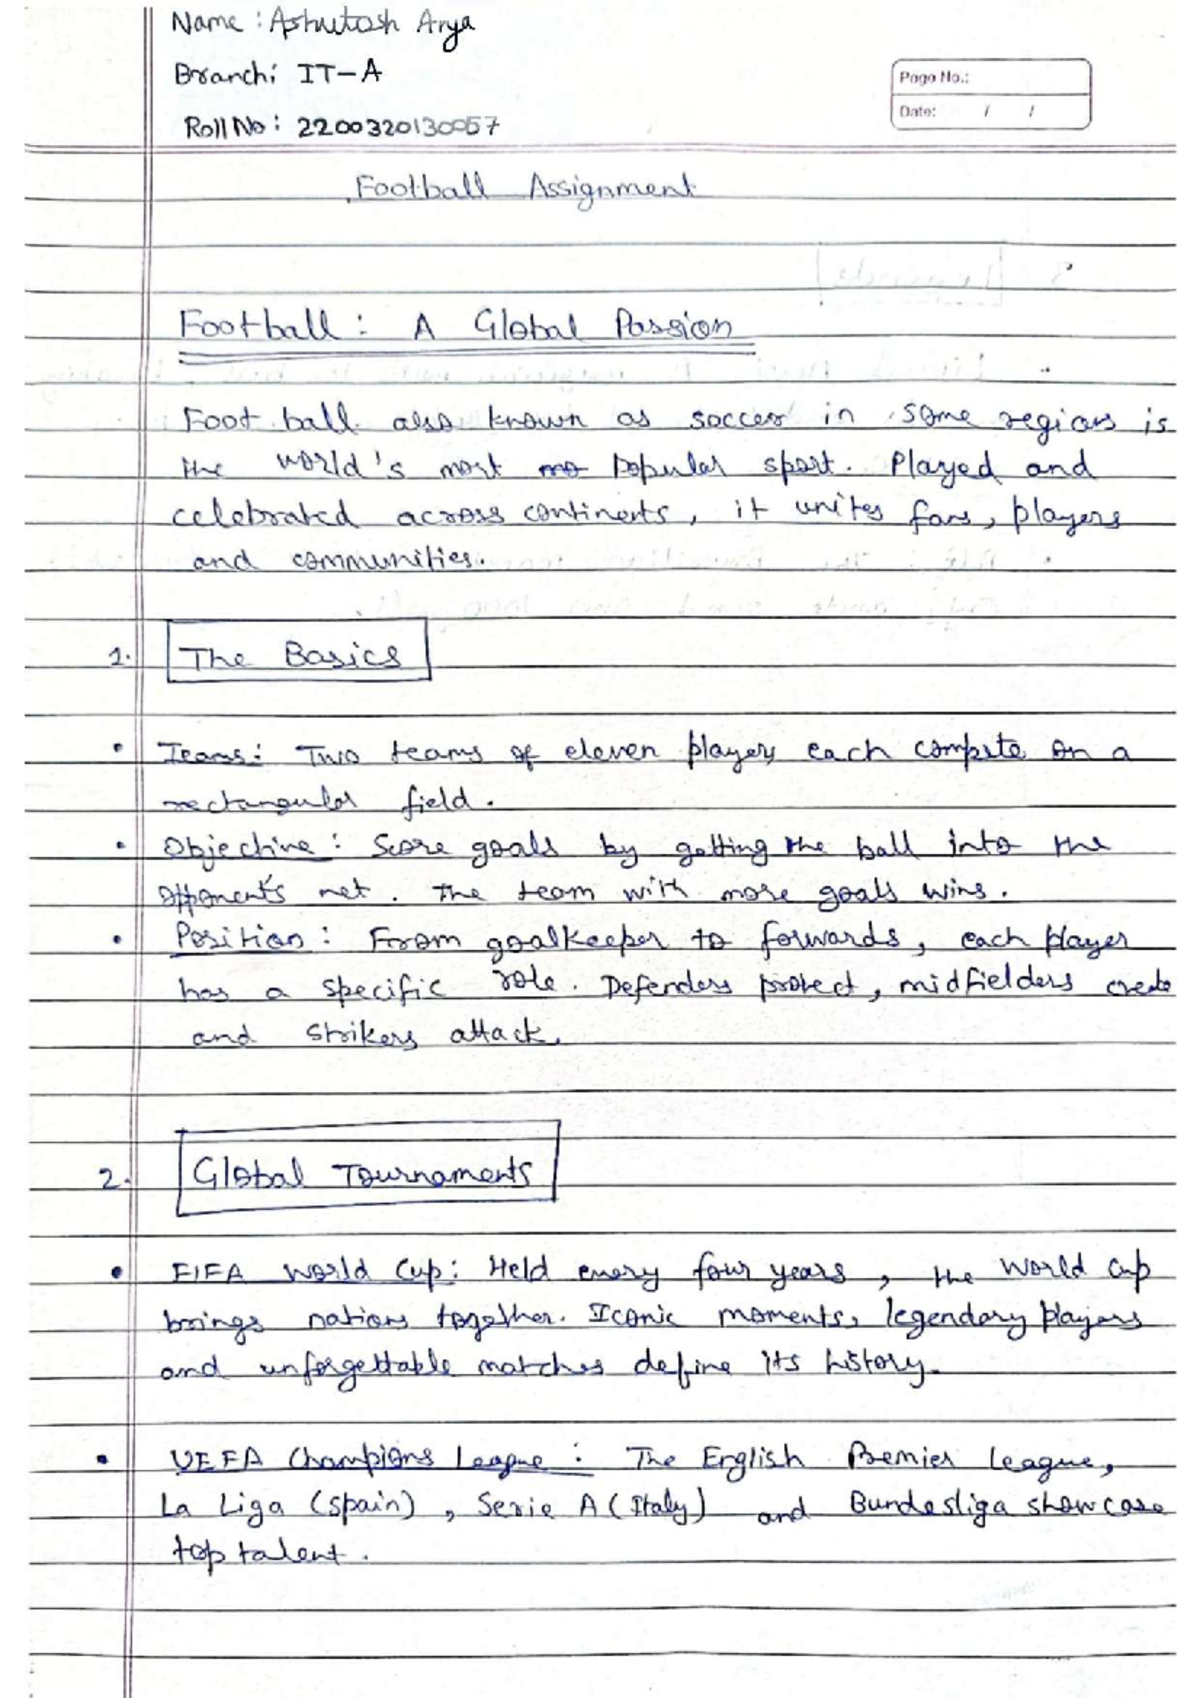 Name : Ashutosh Arya
Branch: IT-A
Roll No: 2200320130057
Page No.:
Date: / /
Football Assignment
Football: A Global Passion
Foot ball also known as soccer in some regions is
the world's most mo popular sport. Played and
celebrated across continents, it unites fans, players
and communities.
1. The Basics
• Teams: Two teams of eleven players each compete on a
rectangular field.
• Objective: Score goals by getting the ball into the
opponent's net. The team with more goals wins.
• Position: From goalkeeper to forwards, each player
has a specific role. Defenders protect, midfielders create
and strikers attack.
2. Global Tournaments
• FIFA World Cup: Held every four years, the World Cup
brings nations together. Iconic moments, legendary players
and unforgettable matches define its history.
• UEFA Champions League: The English Premier League,
La Liga (Spain), Serie A (Italy) and Bundesliga showcase
top talent.